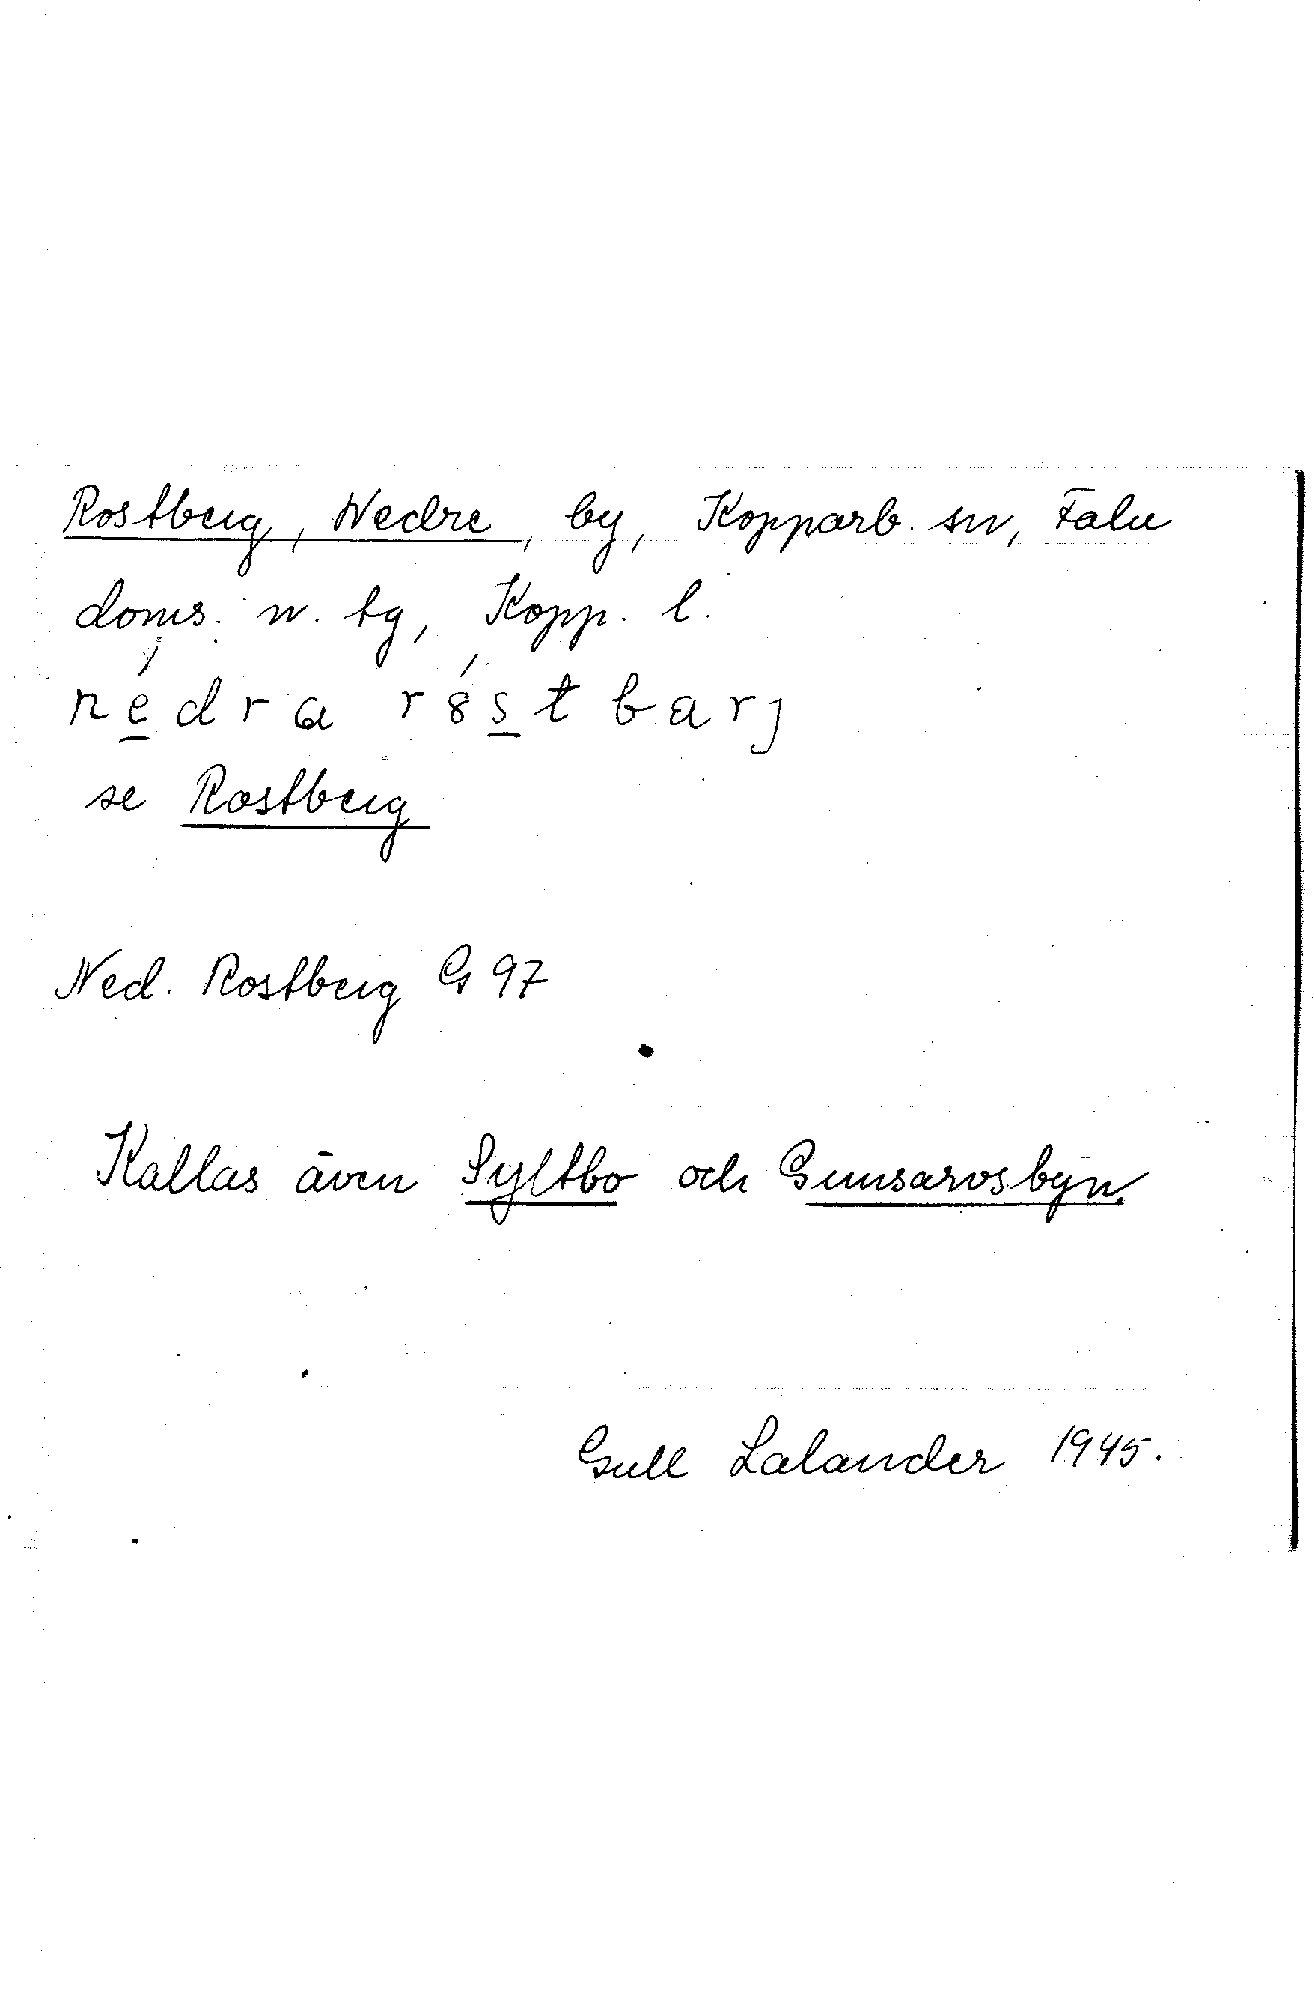 Rostberg, Nedre, by, Kopparb. sn, Falu
doms. n. tg, Kopp. l.
nédra r󠀠ó̤stbarj
se Rostberg
Ned. Rostberg G 97
Kallas även Syltbo och Gunsarvsbyn.
Gull Lalander 1945.